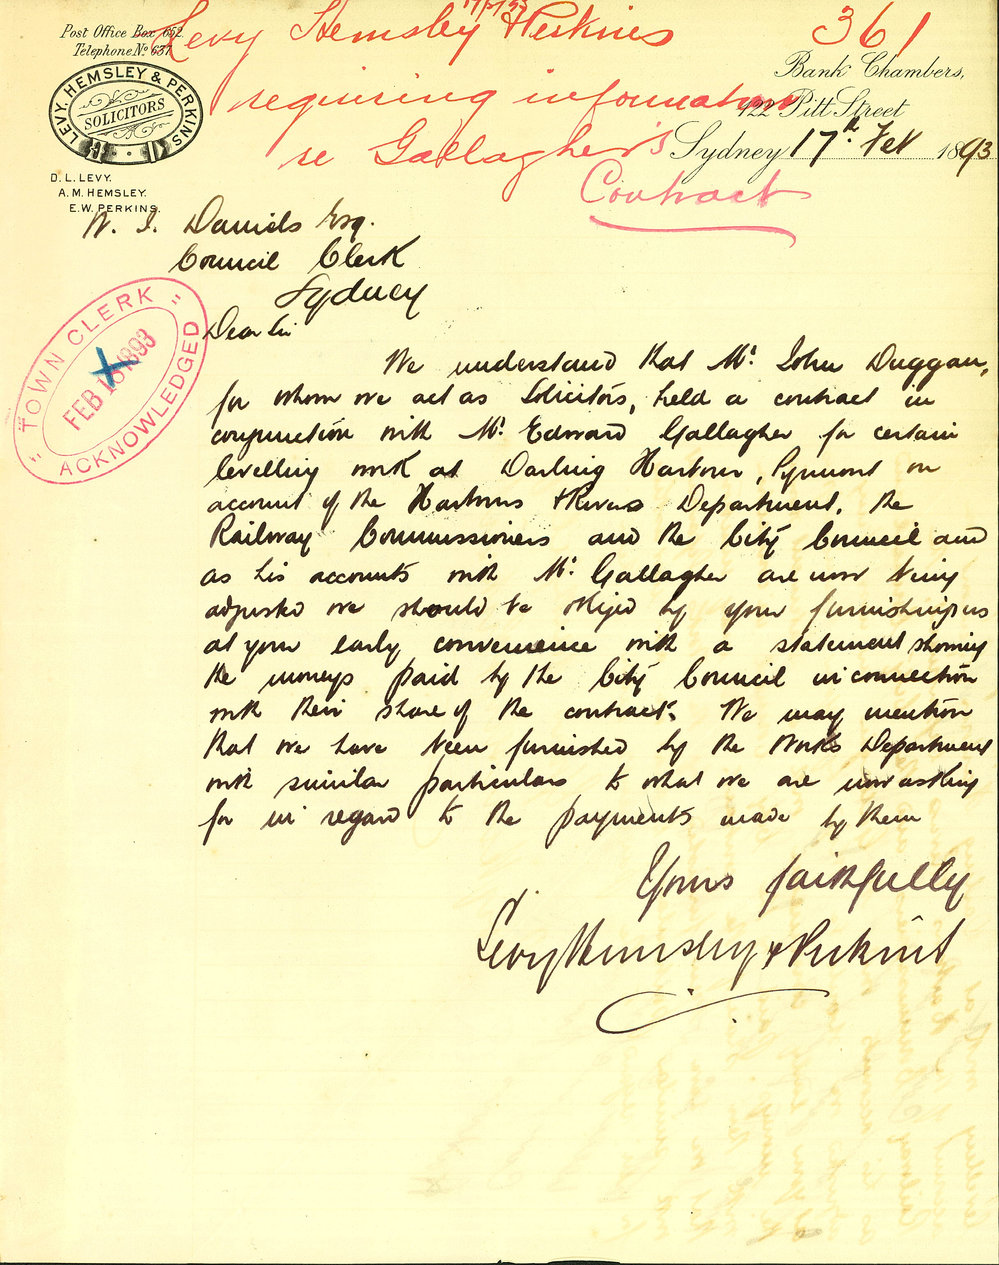 17/2/93
Levy Hemsley & Perkins
361
requiring information
re Gallagher's
Contract
Post Office Box 652.
Telephone No 637.
LEVY. HEMSLEY & PERKINS
SOLICITORS
D. L. LEVY.
A. M. HEMSLEY.
E. W. PERKINS.
Bank Chambers,
422 Pitt Street
Sydney 17th Feb 1893
Daniels Esq.
Council Clerk
Sydney
TOWN CLERK
FEB 18 1893
ACKNOWLEDGED
Dear Sir
We understand that Mr. John Duggan,
for whom we act as Solicitors, held a contract in
conjunction with Mr. Edward Gallagher for certain
levelling work at Darling Harbour, Pyrmont on
account of the Harbours & Rivers Department, the
Railway Commissioners and the City Council and
as his accounts with Mr. Gallagher are now being
adjusted we should be obliged by your furnishing us
at your early convenience with a statement showing
the moneys paid by the City Council in connection
with their share of the contract. We may mention
that we have been furnished by the Works Department
with similar particulars to what we are now asking
for in regard to the payments made by them
Yours faithfully
Levy Hemsley & Perkins